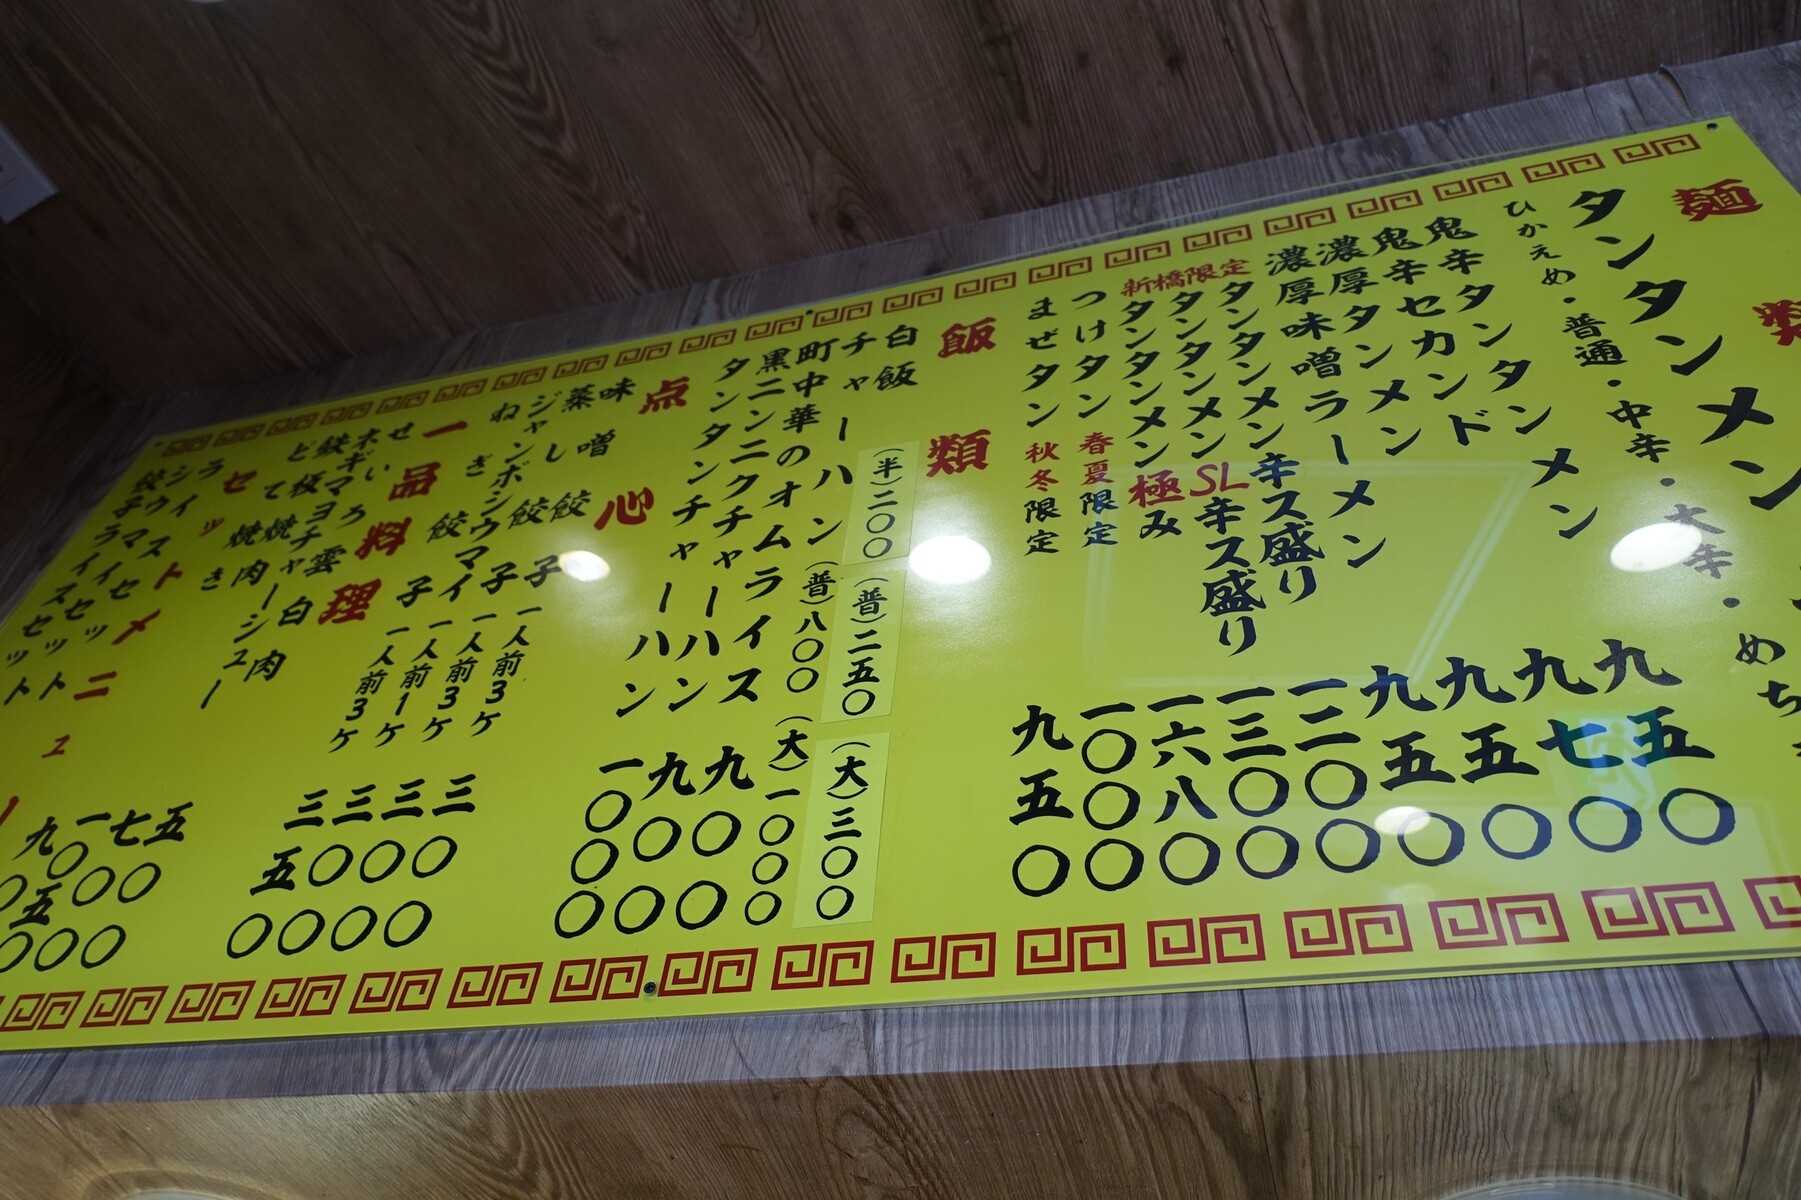 麺類
タンタンメン
ひかえめ・普通・中辛・大辛・めち
鬼辛タンタンメン 九五〇
鬼辛セカンド 九七〇
濃厚タンメン 九五〇
濃厚味噌ラーメン 九五〇
新橋限定
タンタンメン辛ス盛り 一二〇〇
タンタンメンSL辛ス盛り 一三〇〇
タンタンメン極み 一六八〇
つけタン 春夏限定 一〇〇〇
まぜタン 秋冬限定 九五〇
飯類
白飯 (半)二〇〇 (普)二五〇 (大)三〇〇
チャーハン (普)八〇〇 (大)一〇〇〇
町中華のオムライス 九〇〇
黒ニンニクチャーハン 九〇〇
タンタンチャーハン 一〇〇〇
点心
味噌餃子 一人前3ケ 三〇〇
蒸し餃子 一人前3ケ 三〇〇
ジャンボシウマイ 一人前1ケ 三〇〇
ねぎ餃子 一人前3ケ 三五〇
一品料理
せいろ雲白肉 五〇〇
ネギマヨチャーシュー 七〇〇
鉄板焼肉 一〇五〇
どて焼き 九〇
セットメニュー
ライスセット
シウマイセット
餃子ライスセット